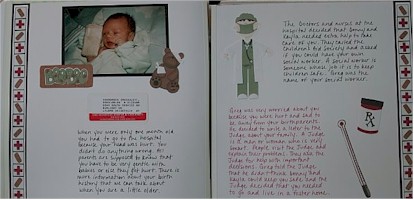 when you were only one month old
you had to go to the hospital
because your head was hurt. You
didn't do anything wrong. All
parents are supposed to know that
you have to be very gentle with
babies or else they get hurt. There is
more information about your birth
history that we can talk about
when you are a little older.
The Doctors and nurses at the
hospital decided that and
needed extra help to take
care of you. They called the
Children's Aid Society and asked
if you could have your own
social worker. A social worker is
someone whose job it is to keep
children safe. was the
name of your social worker.
Greg was very worried about you
because you were hurt and had to
be away from your birth parents.
He decided to write a letter to the
Judge about your family. A Judge
is a man or woman who is very
smart. People visit the Judge and
explain their problems. They ask the
Judge for help with important
decisions. Greg told the Judge
that he didn't think and
could keep you safe, and the
Judge decided that you needed
to go and live in a foster home.
Rx